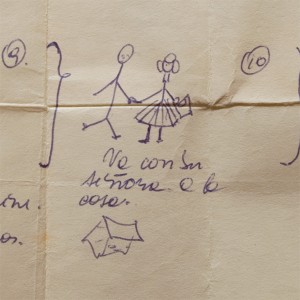 9.
10
Va con su
señora a la
casa.
os.